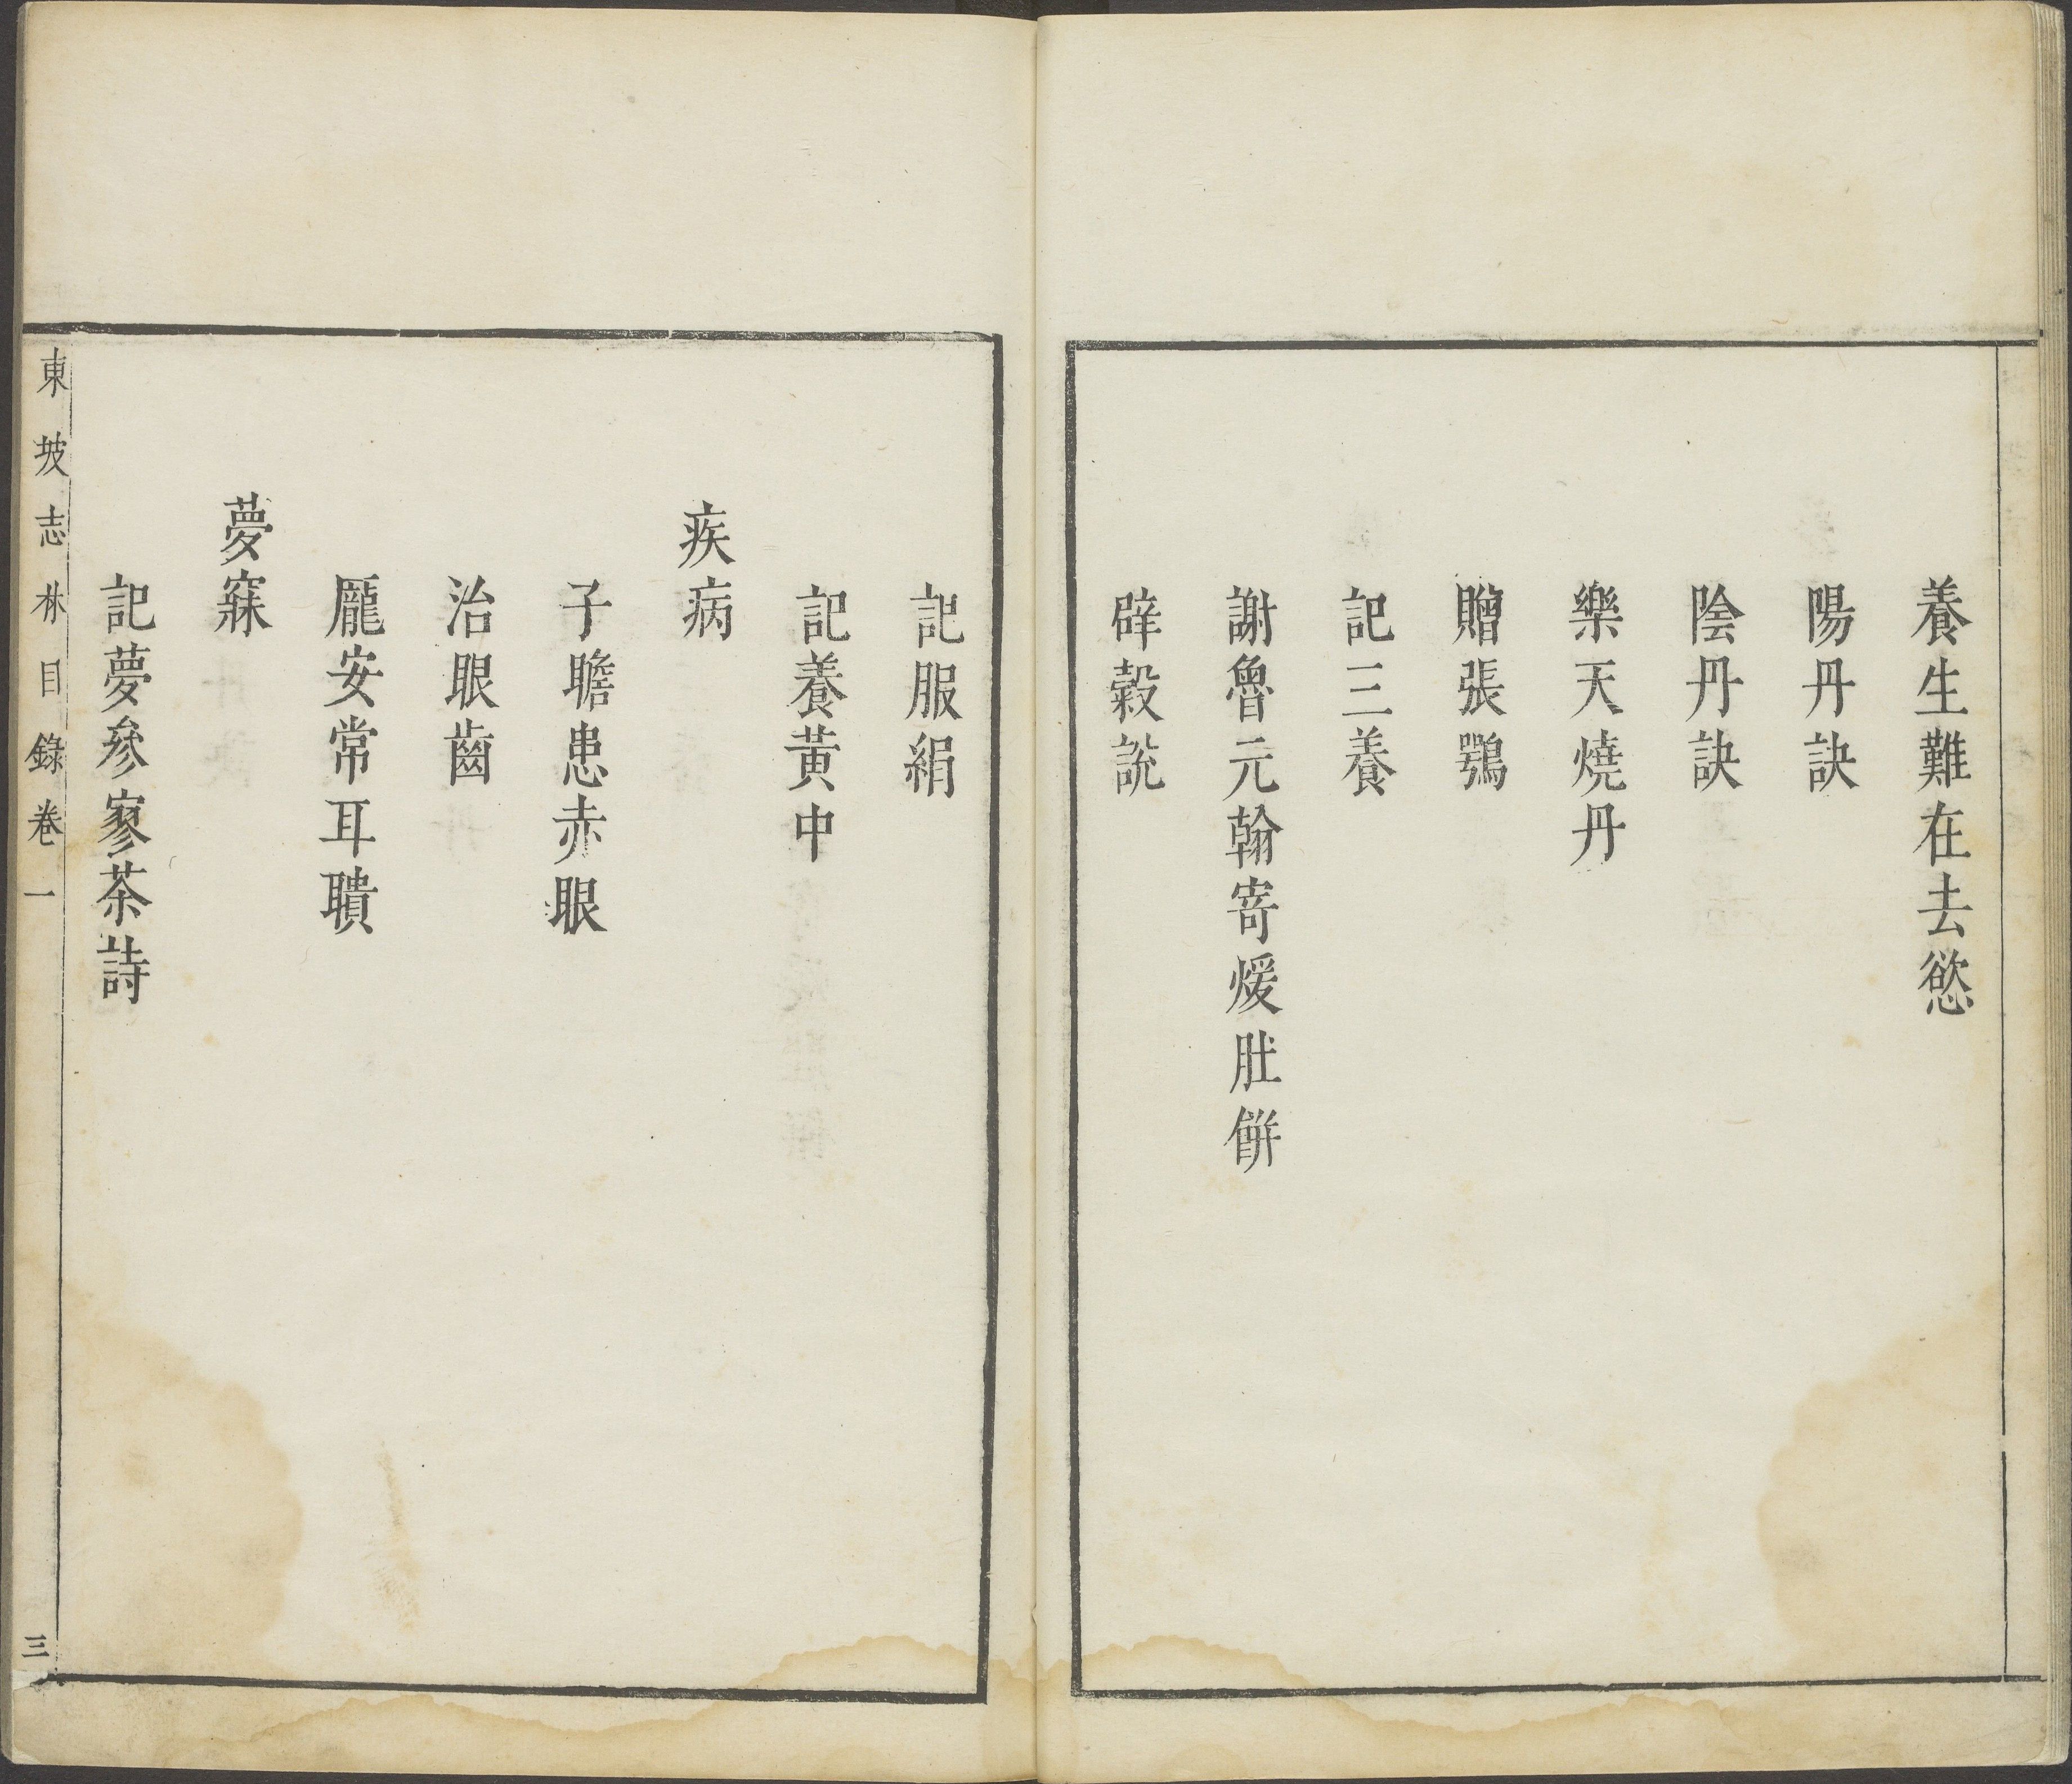 養生難在去慾
陽丹訣
陰丹訣
樂天燒丹
贈張鶚
記三養
謝魯元翰寄煖肚餅
辟穀說
記服絹
記養黃中
疾病
子瞻患赤眼
治眼齒
龐安常耳聵
夢寐
記夢參寥茶詩
東坡志林目錄卷一
三